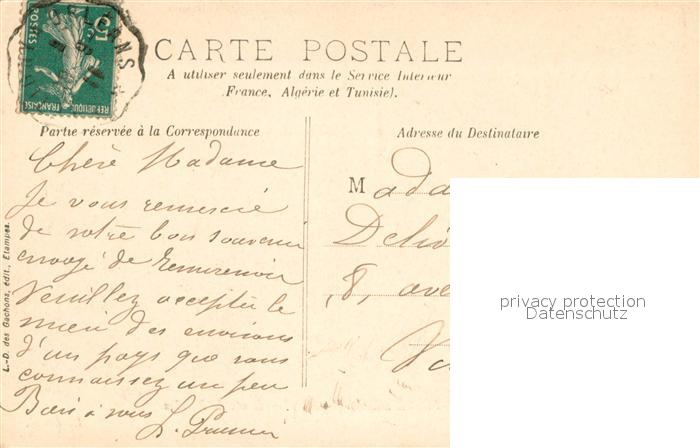 CARTE POSTALE
A utiliser seulement dans le Service Intérieur
(France, Algérie et Tunisie).
Partie réservée à la Correspondance
Adresse du Destinataire
Chère Madame
Je vous remercie
de votre bon souvenir
envoyé de Remiremont
Veuillez accepter le
mien des environs
d'un pays que vous
connaissez un peu
Bien à vous
Mada
8, ave
L.-D. des Gachons, édit., Etampes.
5c
POSTES
REPUBLIQUE FRANÇAISE
privacy protection
Datenschutz